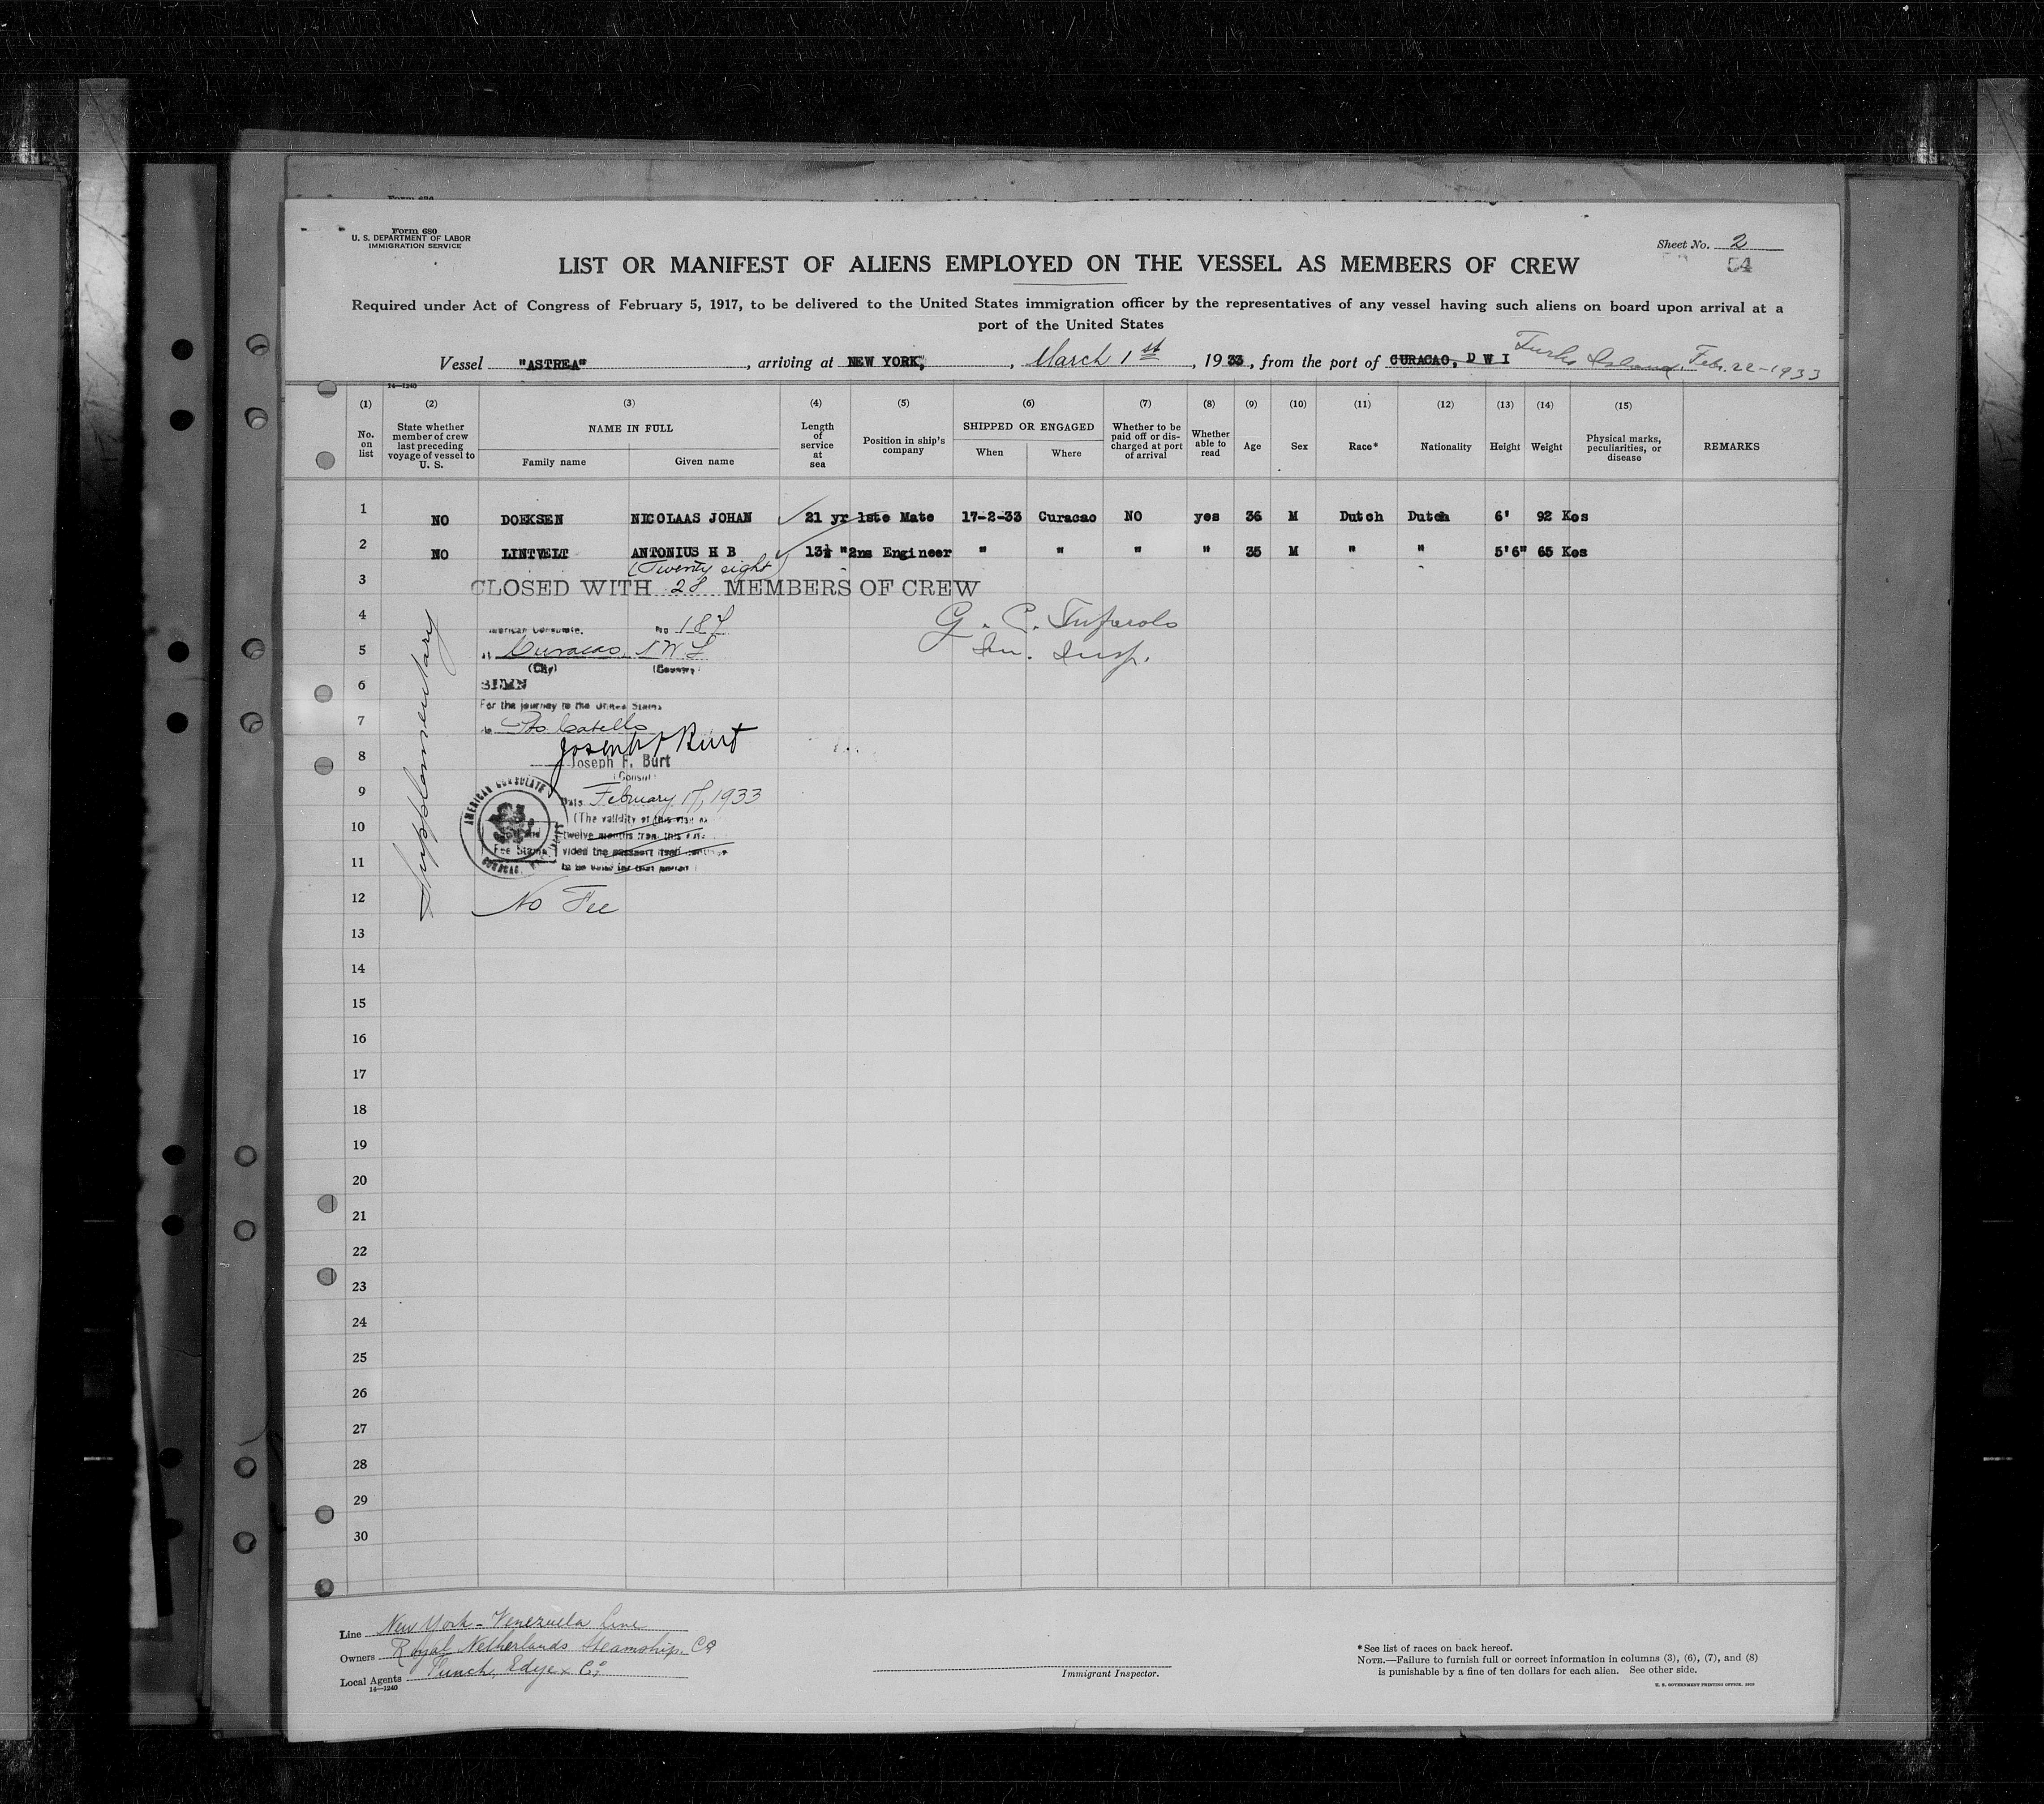 Form 680
U. S. DEPARTMENT OF LABOR
IMMIGRATION SERVICE
Sheet No. 2
54
LIST OR MANIFEST OF ALIENS EMPLOYED ON THE VESSEL AS MEMBERS OF CREW
Required under Act of Congress of February 5, 1917, to be delivered to the United States immigration officer by the representatives of any vessel having such aliens on board upon arrival at a
port of the United States
Vessel "ASTREA", arriving at NEW YORK, March 1st, 1933, from the port of CURACAO, D W I Turks Island, Feb. 22-1933
14—1240
(1) (2) (3) (4) (5) (6) (7) (8) (9) (10) (11) (12) (13) (14) (15)
No. on list
State whether member of crew last preceding voyage of vessel to U. S.
NAME IN FULL
Family name
Given name
Length of service at sea
Position in ship's company
SHIPPED OR ENGAGED
When
Where
Whether to be paid off or discharged at port of arrival
Whether able to read
Age
Sex
Race*
Nationality
Height
Weight
Physical marks, peculiarities, or disease
REMARKS
1 NO DOEKSEN NICOLAAS JOHAN 21 yr 1ste Mate 17-2-33 Curacao NO yes 36 M Dutch Dutch 6' 92 Kos
2 NO LINTVELT ANTONIUS H B 13½ " 2ns Engineer " " " " 35 M " " 5'6" 65 Kos
(Twenty eight)
3 CLOSED WITH 28 MEMBERS OF CREW
4
American Consulate, No 187
5 at Curacao,
(City) (Country)
Im. Insp.
6
SEEN
For the journey to the United States
7
Joseph F Burt
8 Joseph F. Burt
(Consul)
9 Date February 17, 1933
10 (The validity of this visa
twelve months from this date
11 vided the passport itself continues
to be valid for that period)
AMERICAN CONSULATE
CURACAO,
Fee Stamp
12 No Fee
Supplementary
13
14
15
16
17
18
19
20
21
22
23
24
25
26
27
28
29
30
Line New York - Venezuela Line
Owners Royal Netherlands Steamship Co
Local Agents Funch, Edye & Co
14—1240
Immigrant Inspector.
*See list of races on back hereof.
NOTE.—Failure to furnish full or correct information in columns (3), (6), (7), and (8)
is punishable by a fine of ten dollars for each alien. See other side.